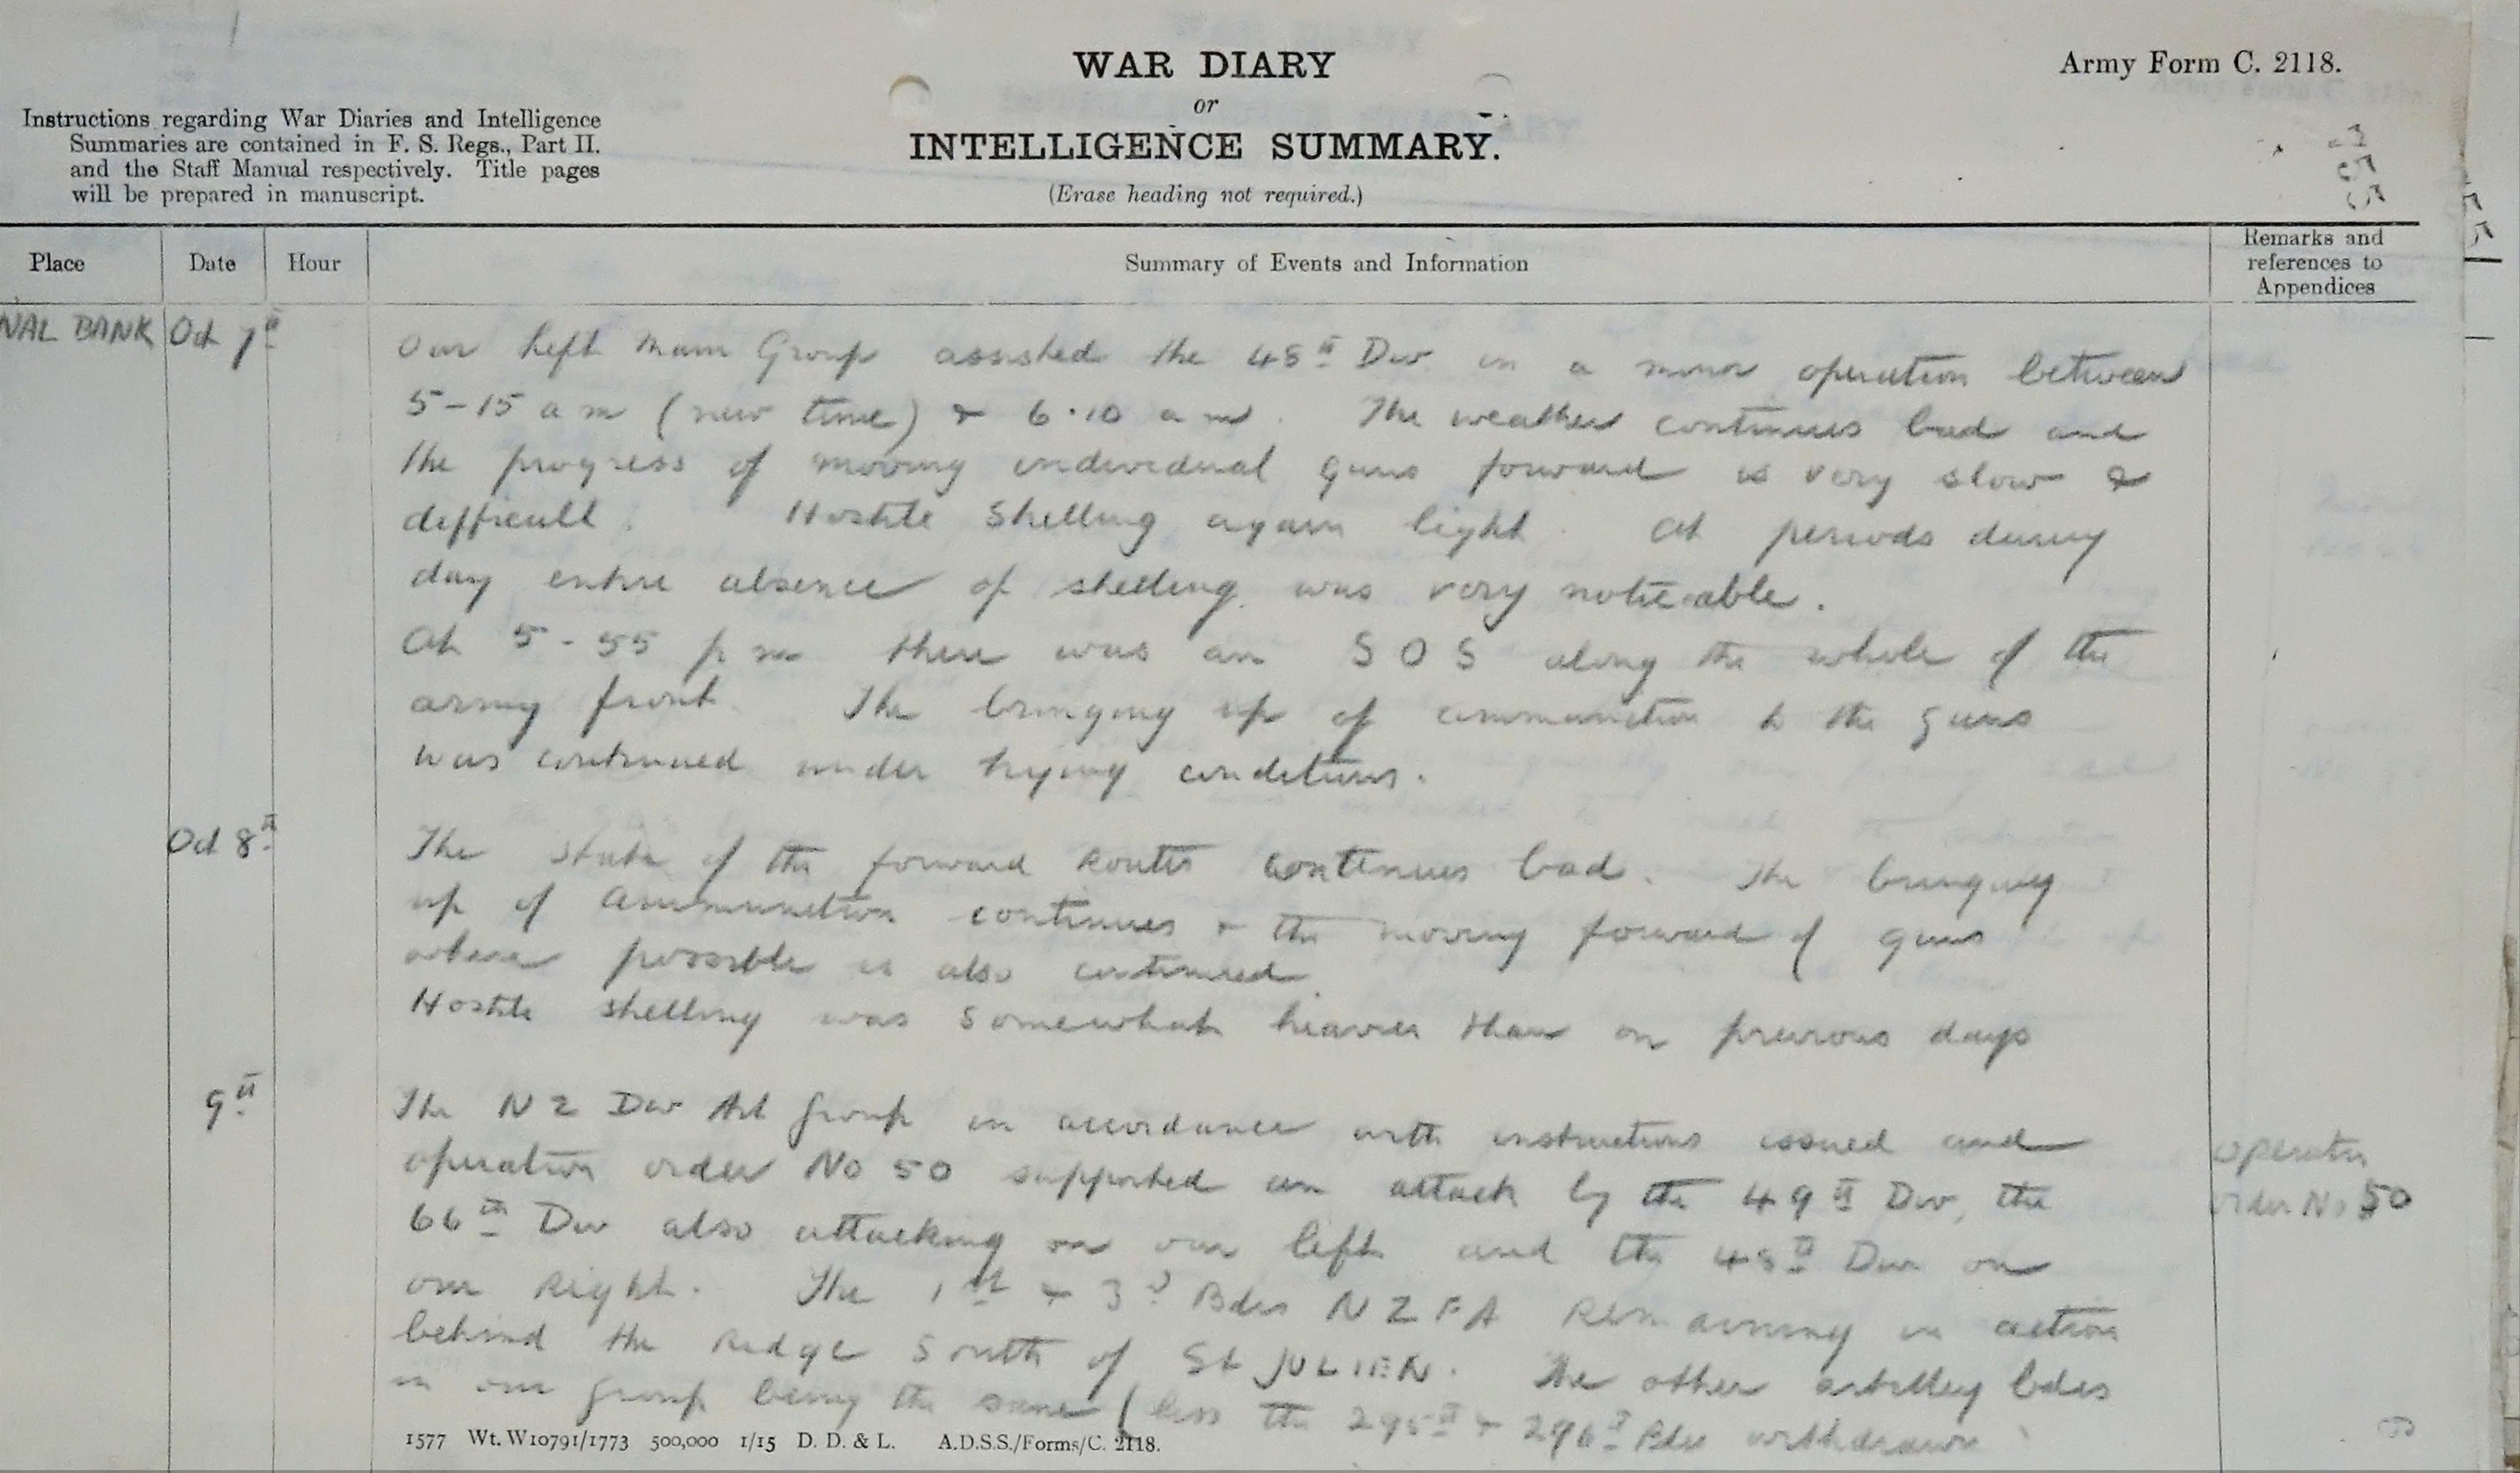 WAR DIARY
or
INTELLIGENCE SUMMARY.
(Erase heading not required.)
Army Form C. 2118.
Instructions regarding War Diaries and Intelligence
Summaries are contained in F. S. Regs., Part II.
and the Staff Manual respectively. Title pages
will be prepared in manuscript.
Place Date Hour Summary of Events and Information Remarks and references to Appendices
NAL BANK Oct 7th
Our Left Main Group assisted the 48th Div in a minor operation between
5-15 am (new time) & 6.10 am. The weather continues bad and
the progress of moving individual guns forward is very slow &
difficult. Hostile Shelling again light. At periods during
day entire absence of shelling was very noticeable.
At 5-55 pm there was an SOS along the whole of the
army front. The bringing up of ammunition to the guns
was continued under trying conditions.
Oct 8th
The state of the forward routes continues bad. The bringing
up of ammunition continues & the moving forward of guns
where possible is also continued.
Hostile shelling was somewhat heavier than on previous days
9th
The NZ Div Art Group in accordance with instructions issued and
operation order No 50 supported an attack by the 49th Div, the
66th Div also attacking on our left and the 48th Div on
our Right. The 1st & 3d Bdes NZFA Remaining in action
behind the Ridge South of St JULIEN. The other artillery bdes
in our group being the same (less the 295th & 296th Bdes withdrawn
Operation
Order No 50
1577 Wt. W10791/1773 500,000 1/15 D. D. & L. A.D.S.S./Forms/C. 2118.